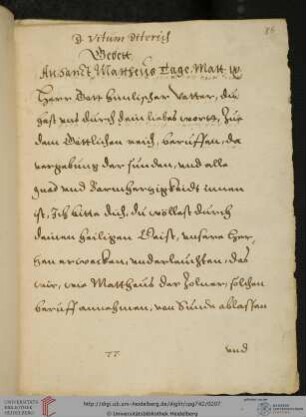 86
D Vitum Dterich
Gebett
An Sanct Mattheus Tage. Matt ix.
Herr Gott himlischer Vatter, du
hast uns durch dein liebes wortt, Zue
dem Göttlichen reich, beruffen, da
vergebung der sunden, und alle
gnad und Barmhertzigkeidt innen
ist, Ich bitte dich, du wöllest durch
deinen heiligen Geist, unsere Her-
tzen erwecken, und erleuchten, das
wir, wie Matthäus der Zolner, solchen
beruff annehmen, von Sünde ablassen
und
UNIVERSITÄTS-
BIBLIOTHEK
HEIDELBERG
http://digi.ub.uni-heidelberg.de/diglit/cpg742/0207
© Universitätsbibliothek Heidelberg